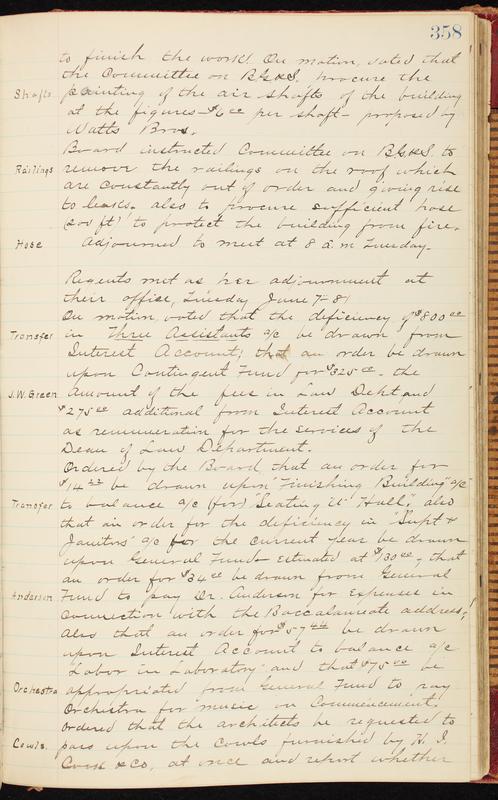 358
to finish the work. On motion, voted that
the Committee on B.G.&S. procure the
Shafts painting of the air-shafts of the building
at the figures - $6 00 per shaft - proposed by
Watts Bros.
Board instructed Committee on B.G.&S. to
Railings remove the railings on the roof which
are constantly out of order and giving rise
to leaks. also to procure sufficient hose
(200 ft) to protect the building from fire.
Hose Adjourned to meet at 8 a.m Tuesday.
Regents met as per adjournment at
their office, Tuesday June 7 - 81
On motion, voted that the deficiency of $800 00
Transfer in Three Assistants a/c be drawn from
Interest Account; that an order be drawn
upon Contingent Fund for $325 00 - the
J.W. Green amount of the fees in Law Dept and
$275 00 additional from Interest Account
as remuneration for the services of the
Dean of Law Department.
Ordered by the Board that an order for
be drawn upon "Finishing Building" a/c
Transfer to balance a/c (for) "Seating U Hall", also
that an order for the deficiency in "Supt &
Janitors" a/c for the current year be drawn
upon General Fund - estimated at $130 00, that
an order for $34 00 be drawn from General
Anderson Fund to pay Dr. Anderson for expenses in
connection with the Baccalaureate address;
Also that an order for $57 44 be drawn
upon Interest Account to balance a/c
"Labor in Laboratory" and that $75 00 be
Orchestra appropriated from General Fund to pay
Orchestra for music on Commencement.
Ordered that the architects be requested to
Cowls. pass upon the cowls furnished by H. J.
& Co, at once and report whether